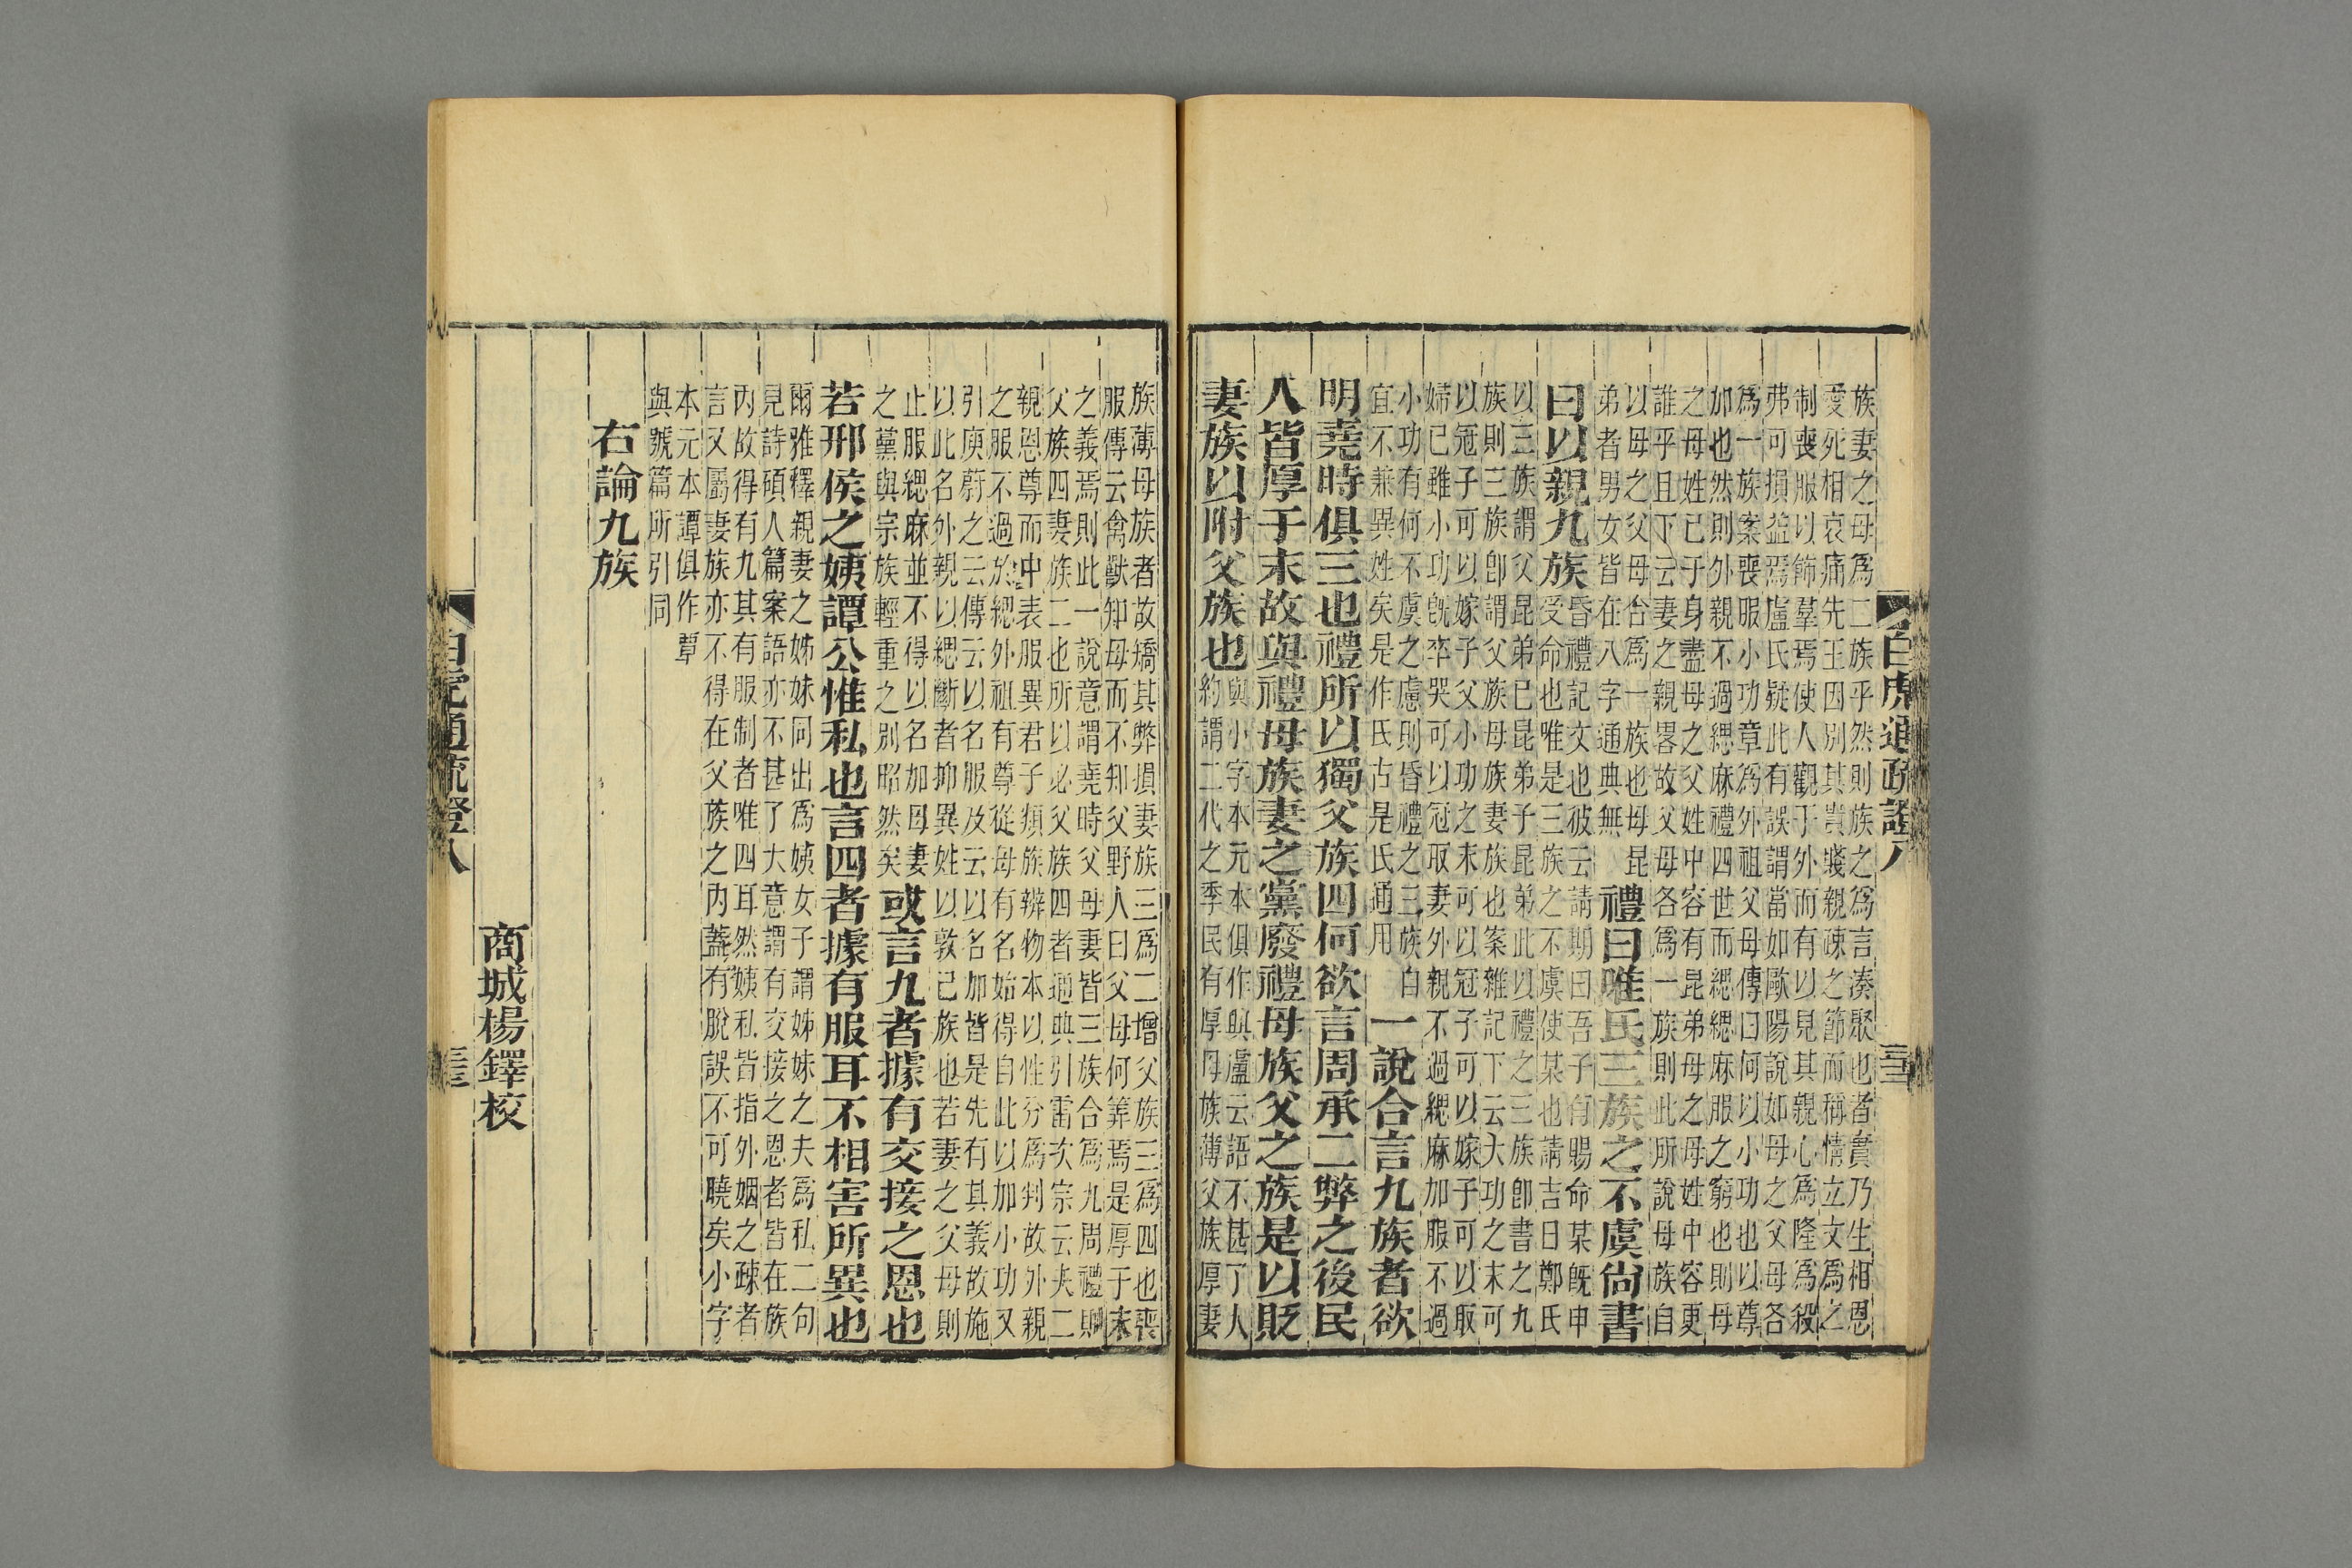 族妻之母爲二族乎然則族之爲言湊聚也者貴乃生相恩
愛死相哀痛先王因別其貴賤親疎之節而稱情立文爲之
制喪服以飾羣焉使人觀于外而有以見其親心爲隆爲殺
弗可損益焉盧氏疑此有誤謂當如歐陽說如母之父母各
爲一族案喪服小功章爲外祖父母傳曰何以小功也以尊
加也然則外親不過緦麻禮四世而緦緦麻服之窮也則母
之母姓已于身盡母之父姓中容有昆弟母之母姓中容更
誰乎且下云妻之親畧故父母各爲一族則此所說母族自
以母之父母合爲一族也母昆
弟者男女皆在八字通典無
禮曰唯氏三族之不虞尙書
曰以親九族
昏禮記文也彼云請期曰吾子有賜命某旣申
受命也唯是三族之不虞使某也請吉日鄭氏
以三族謂父昆弟己昆弟子昆弟此以禮之三族卽書之九
族則三族卽謂父族母族妻族也案雜記下云大功之末可
以冠子可以嫁子父小功之末可以冠子可以嫁子可以取
婦己雖小功旣卒哭可以冠取妻外親不過緦麻加服不過
小功有何不虞之慮則昏禮之三族自
宜不兼異姓矣是作氏古是氏通用
一說合言九族者欲
明堯時俱三也禮所以獨父族四何欲言周承二弊之後民
人皆厚于末故與禮母族妻之黨廢禮母族父之族是以貶
妻族以附父族也
與小字本元本俱作興盧云語不甚了人
約謂二代之季民有厚母族薄父族厚妻
族薄母族者故矯其弊損妻族三爲二增父族三爲四也喪
服傳云禽獸知母而不知父野人曰父母何筭焉是厚于末
之義焉則此一說意謂堯時父母妻皆三族合爲九周禮則
父族四妻族二也所以必父族四者通典引雷次宗云夫二
親恩尊而中表服異君子類族辨物本以性分爲判故外親
之服不過於緦外祖有尊從母有名始得自此以加小功又
引庾蔚之云傳云以名服及云以名加皆是先有其義故施
以此名外親以緦斷者抑異姓以敦己族也若妻之父母則
止服緦麻並不得以名加母妻
之黨與宗族輕重之別昭然矣
或言九者據有交接之恩也
若邢侯之姨譚公惟私也言四者據有服耳不相害所異也
爾雅釋親妻之姊妹同出爲姨女子謂姊妹之夫爲私二句
見詩碩人篇案語亦不甚了大意謂有交接之恩者皆在族
內故得有九其有服制者唯四耳然姨私皆指外姻之疎者
言又屬妻族亦不得在父族之內蓋有脫誤不可曉矣小字
本元本譚俱作覃
與號篇所引同
右論九族
商城楊鐸校
白虎通疏證八
白虎通疏證八